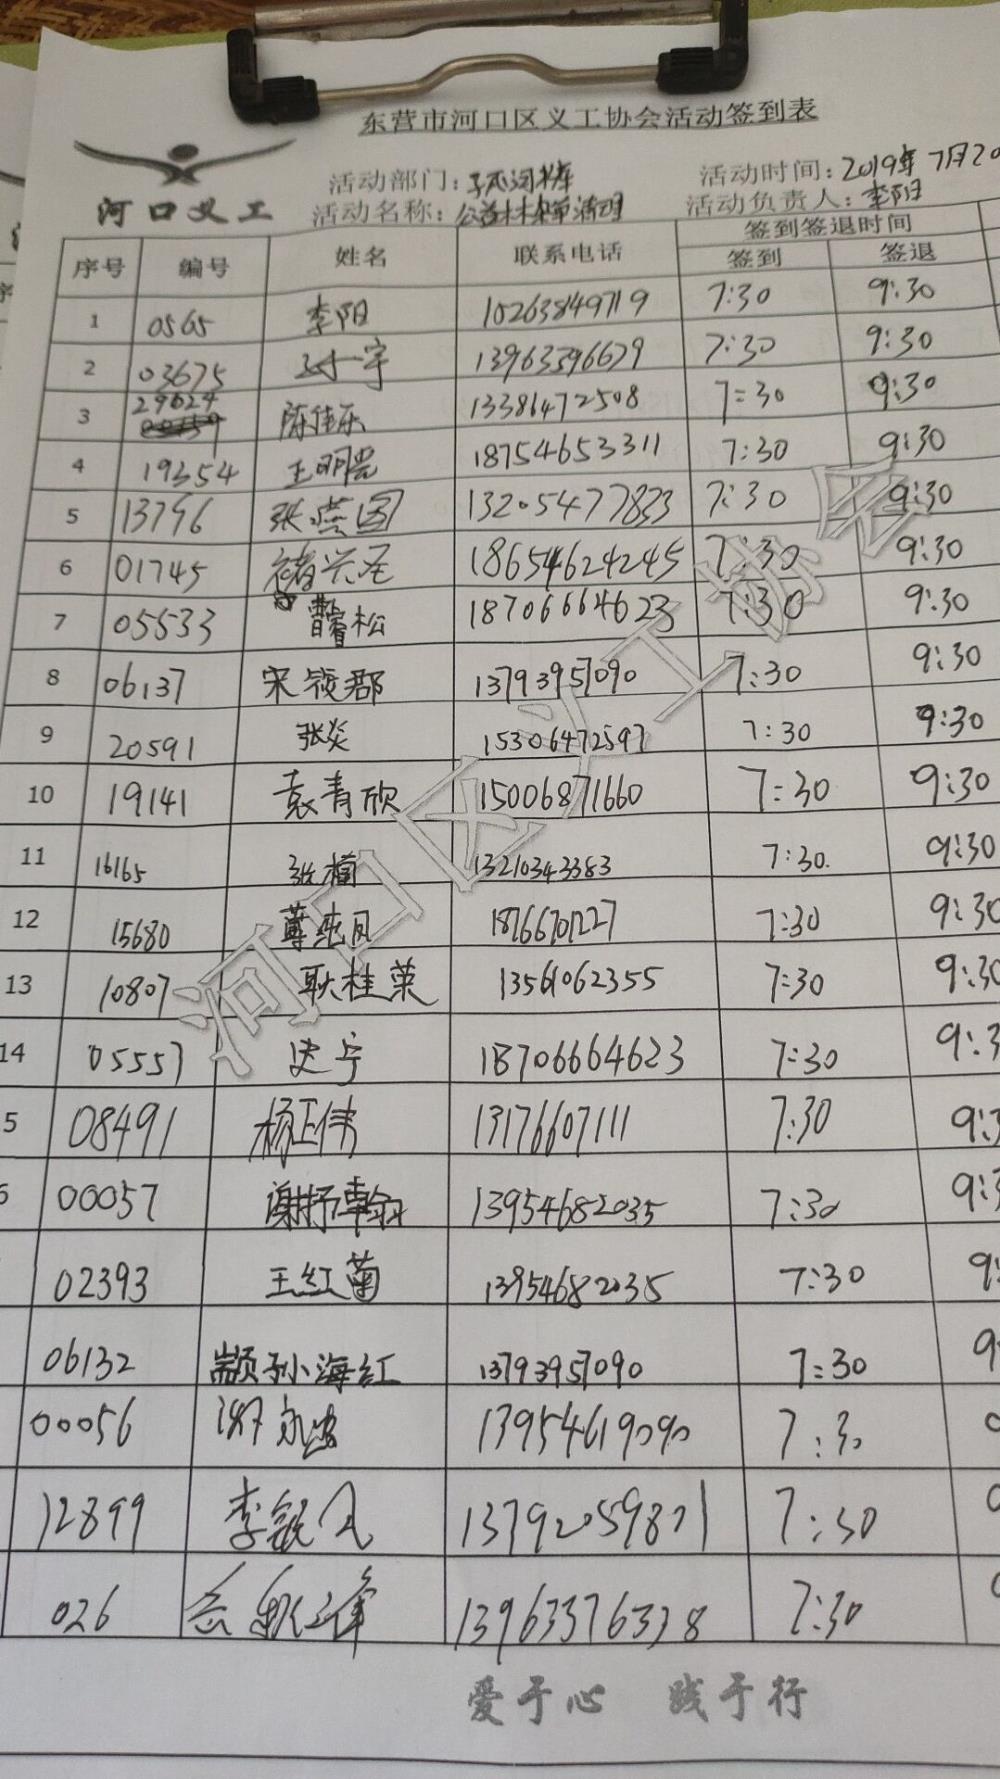 东营市河口区义工协会活动签到表
河口义工
活动部门：
活动时间：2019年7月20
活动名称：公益
活动负责人：李阳
序号 编号 姓名 联系电话 签到签退时间
签到 签退
1 0565 李阳 15263849719 7:30 9:30
2 03675 一宇 13963396679 7:30 9:30
3 29624 陈佳乐 13386472508 7:30 9:30
4 19354 王明 18754653311 7:30 9:30
5 13796 张 13205477833 7:30 9:30
6 01745 褚兴圣 18654624245 7:30 9:30
7 05533 曹睿松 18706664623 7:30 9:30
8 06137 宋筱郡 13793957090 7:30 9:30
9 20591 张炎 15306472597 7:30 9:30
10 19141 袁青欣 15006871660 7:30 9:30
11 16165 张楠 13210343383 7:30. 9:30
12 15680 18766701227 7:30 9:30
13 10807 耿桂荣 13561062355 7:30 9:30
14 05557 史宁 18706664623 7:30 9:3
5 08491 杨正伟 13176607111 7:30 9:3
6 00057 谢抒翰 13954682035 7:30 9:3
02393 王红菊 13954682035 7:30 9:
06132 孙海红 13793957090 7:30 9
00056 13954619090 7:30
12899 李 13792059871 7:30
026 13963376338 7:30
河口区义工协会
爱于心 践于行